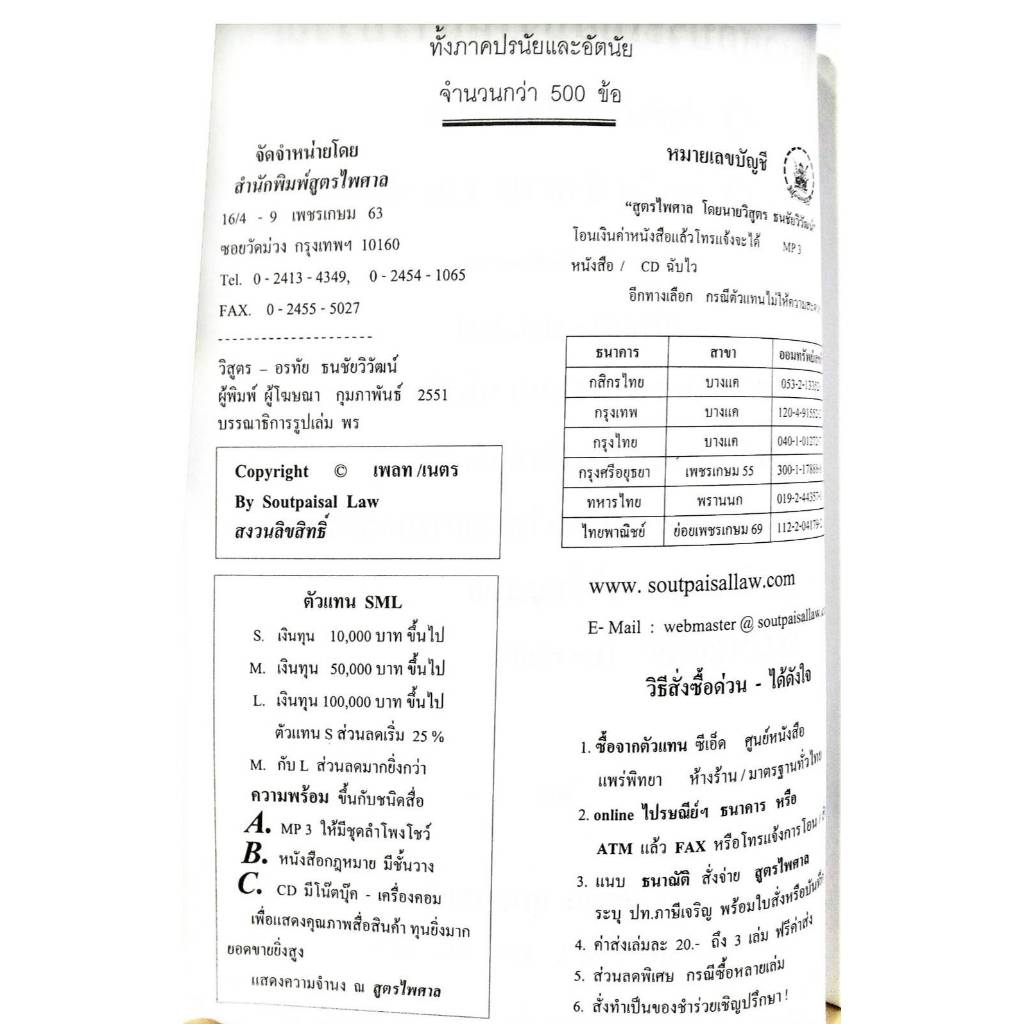 ทั้งภาคปรนัยและอัตนัย
จำนวนกว่า 500 ข้อ
จัดจำหน่ายโดย
สำนักพิมพ์สูตรไพศาล
16/4 - 9 เพชรเกษม 63
ซอยวัดม่วง กรุงเทพฯ 10160
Tel. 0 - 2413 - 4349, 0 - 2454 - 1065
FAX. 0 - 2455 - 5027
วิสูตร – อรทัย ธนชัยวิวัฒน์
ผู้พิมพ์ ผู้โฆษณา กุมภาพันธ์ 2551
บรรณาธิการรูปเล่ม พร
Copyright © เพลท /เนตร
By Soutpaisal Law
สงวนลิขสิทธิ์
ตัวแทน SML
S. เงินทุน 10,000 บาท ขึ้นไป
M. เงินทุน 50,000 บาท ขึ้นไป
L. เงินทุน 100,000 บาท ขึ้นไป
ตัวแทน S ส่วนลดเริ่ม 25 %
M. กับ L ส่วนลดมากยิ่งกว่า
ความพร้อม ขึ้นกับชนิดสื่อ
A. MP 3 ให้มีชุดลำโพงโชว์
B. หนังสือกฎหมาย มีชั้นวาง
C. CD มีโน๊ตบุ๊ค - เครื่องคอม
เพื่อแสดงคุณภาพสื่อสินค้า ทุนยิ่งมาก
ยอดขายยิ่งสูง
แสดงความจำนง ณ สูตรไพศาล
หมายเลขบัญชี
“สูตรไพศาล โดยนายวิสูตร ธนชัยวิวัฒน์”
โอนเงินค่าหนังสือแล้วโทรแจ้งจะได้ MP 3
หนังสือ / CD ฉับไว
อีกทางเลือก กรณีตัวแทนไม่ให้
ธนาคาร สาขา
กสิกรไทย บางแค
กรุงเทพ บางแค
กรุงไทย บางแค
กรุงศรีอยุธยา เพชรเกษม 55
ทหารไทย พรานนก
ไทยพาณิชย์ ย่อยเพชรเกษม 69
www. soutpaisallaw.com
E- Mail : webmaster @ soutpaisallaw.
วิธีสั่งซื้อด่วน - ได้ดังใจ
1. ซื้อจากตัวแทน ซีเอ็ด ศูนย์หนังสือ
แพร่พิทยา ห้างร้าน / มาตรฐานทั่วไทย
2. online ไปรษณีย์ฯ ธนาคาร หรือ
ATM แล้ว FAX หรือโทรแจ้งการโอน /
3. แนบ ธนาณัติ สั่งจ่าย สูตรไพศาล
ระบุ ปท.ภาษีเจริญ พร้อมใบสั่งหรือบันทึก
4. ค่าส่งเล่มละ 20.- ถึง 3 เล่ม ฟรีค่าส่ง
5. ส่วนลดพิเศษ กรณีซื้อหลายเล่ม
6. สั่งทำเป็นของชำร่วยเชิญปรึกษา !